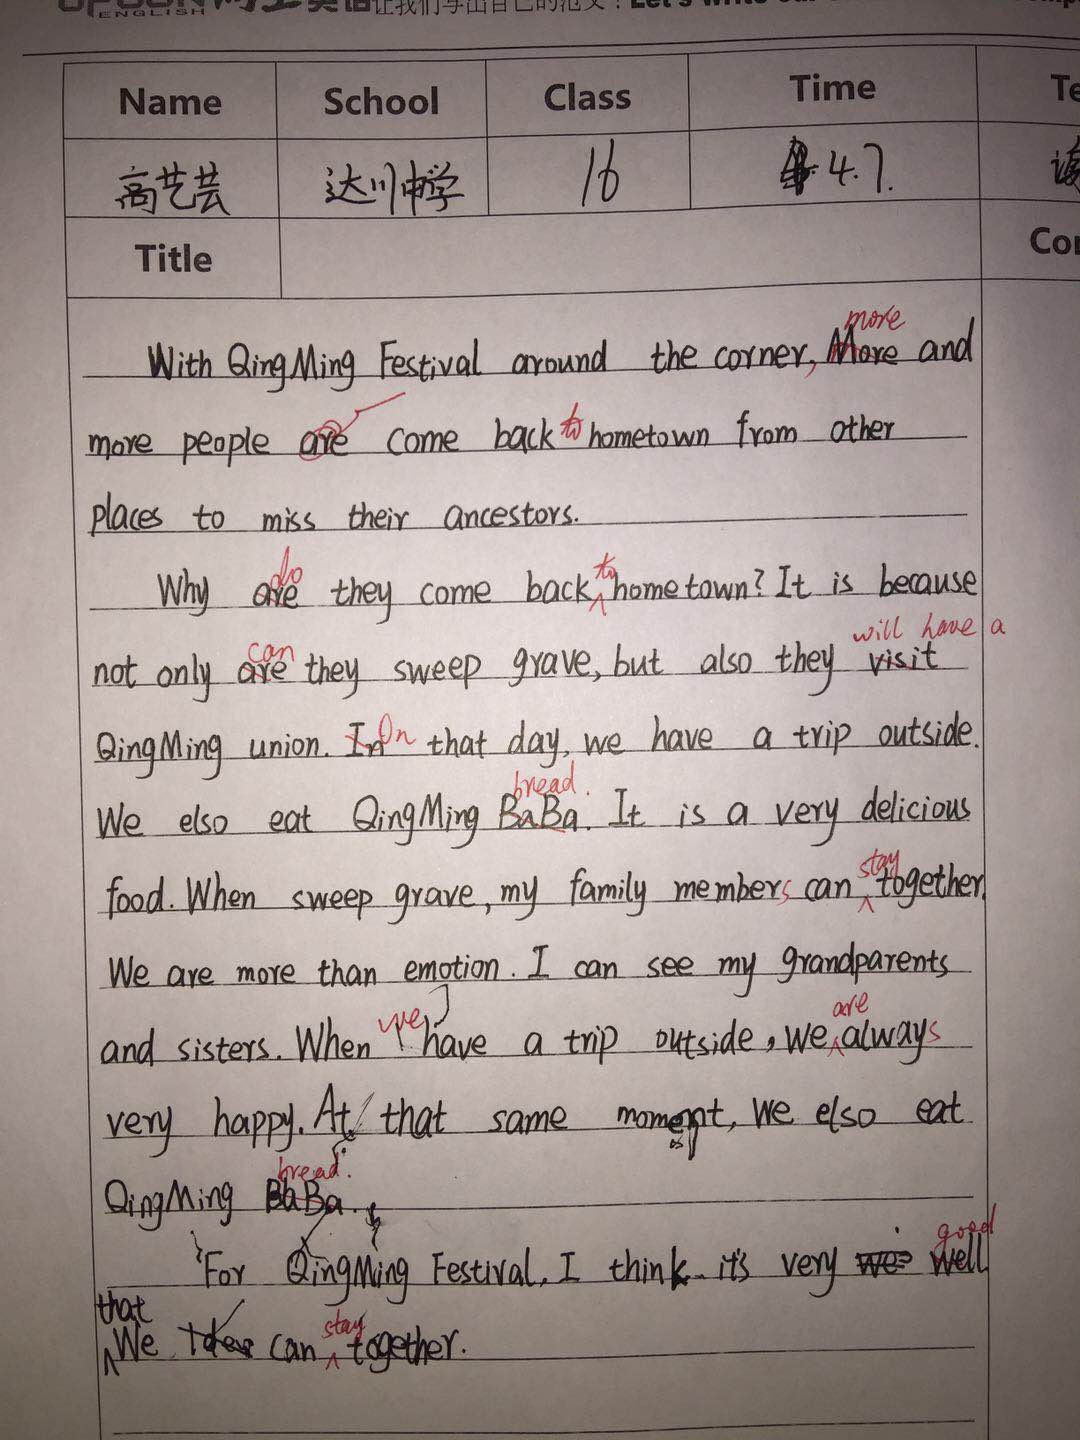 ENGLISH 让我们写出自己的范文! Let's write our
Name School Class Time
高艺芸 达川中学 16 4.7.
Title
more
With QingMing Festival around the corner, More and
more people are come back to hometown from other
places to miss their ancestors.
do to
Why are they come back hometown? It is because
can will have a
not only are they sweep grave, but also they visit
QingMing union. In On that day, we have a trip outside.
bread.
We elso eat QingMing BaBa. It is a very delicious
stay
food. When sweep grave, my family members can together.
We are more than emotion. I can see my grandparents
we are
and sisters. When I have a trip outside, we always
very happy. At that same moment, we elso eat
bread.
QingMing BaBa.
good
For QingMing Festival, I think it's very well
that stay
We can together.